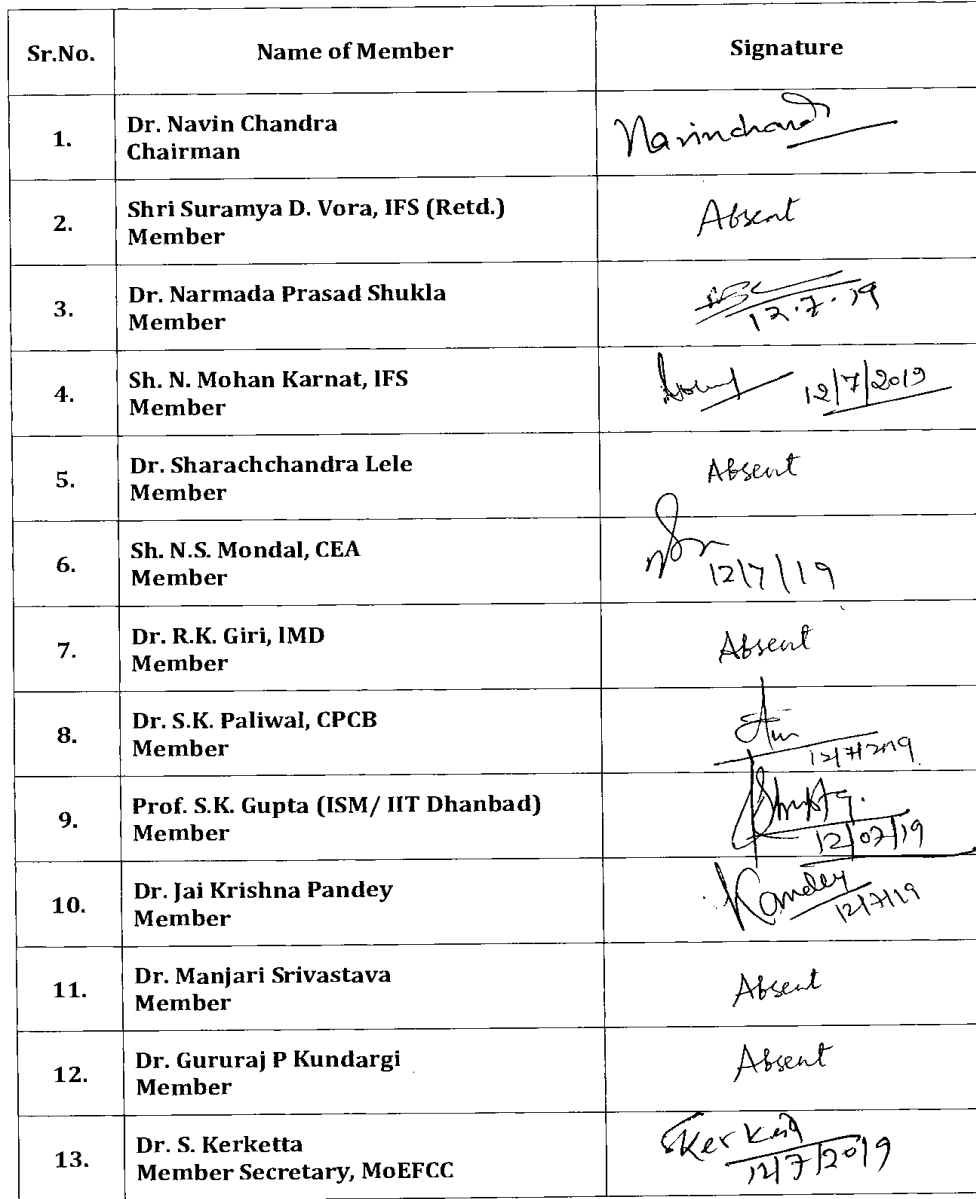 Sr.No. Name of Member Signature
1. Dr. Navin Chandra
Chairman
Navinchandra
2. Shri Suramya D. Vora, IFS (Retd.)
Member
Absent
3. Dr. Narmada Prasad Shukla
Member
12.7.19
4. Sh. N. Mohan Karnat, IFS
Member
12/7/2019
5. Dr. Sharachchandra Lele
Member
Absent
6. Sh. N.S. Mondal, CEA
Member
12/7/19
7. Dr. R.K. Giri, IMD
Member
Absent
8. Dr. S.K. Paliwal, CPCB
Member
12/7/2019
9. Prof. S.K. Gupta (ISM/ IIT Dhanbad)
Member
12/07/19
10. Dr. Jai Krishna Pandey
Member
12/7/19
11. Dr. Manjari Srivastava
Member
Absent
12. Dr. Gururaj P Kundargi
Member
Absent
13. Dr. S. Kerketta
Member Secretary, MoEFCC
12/7/2019